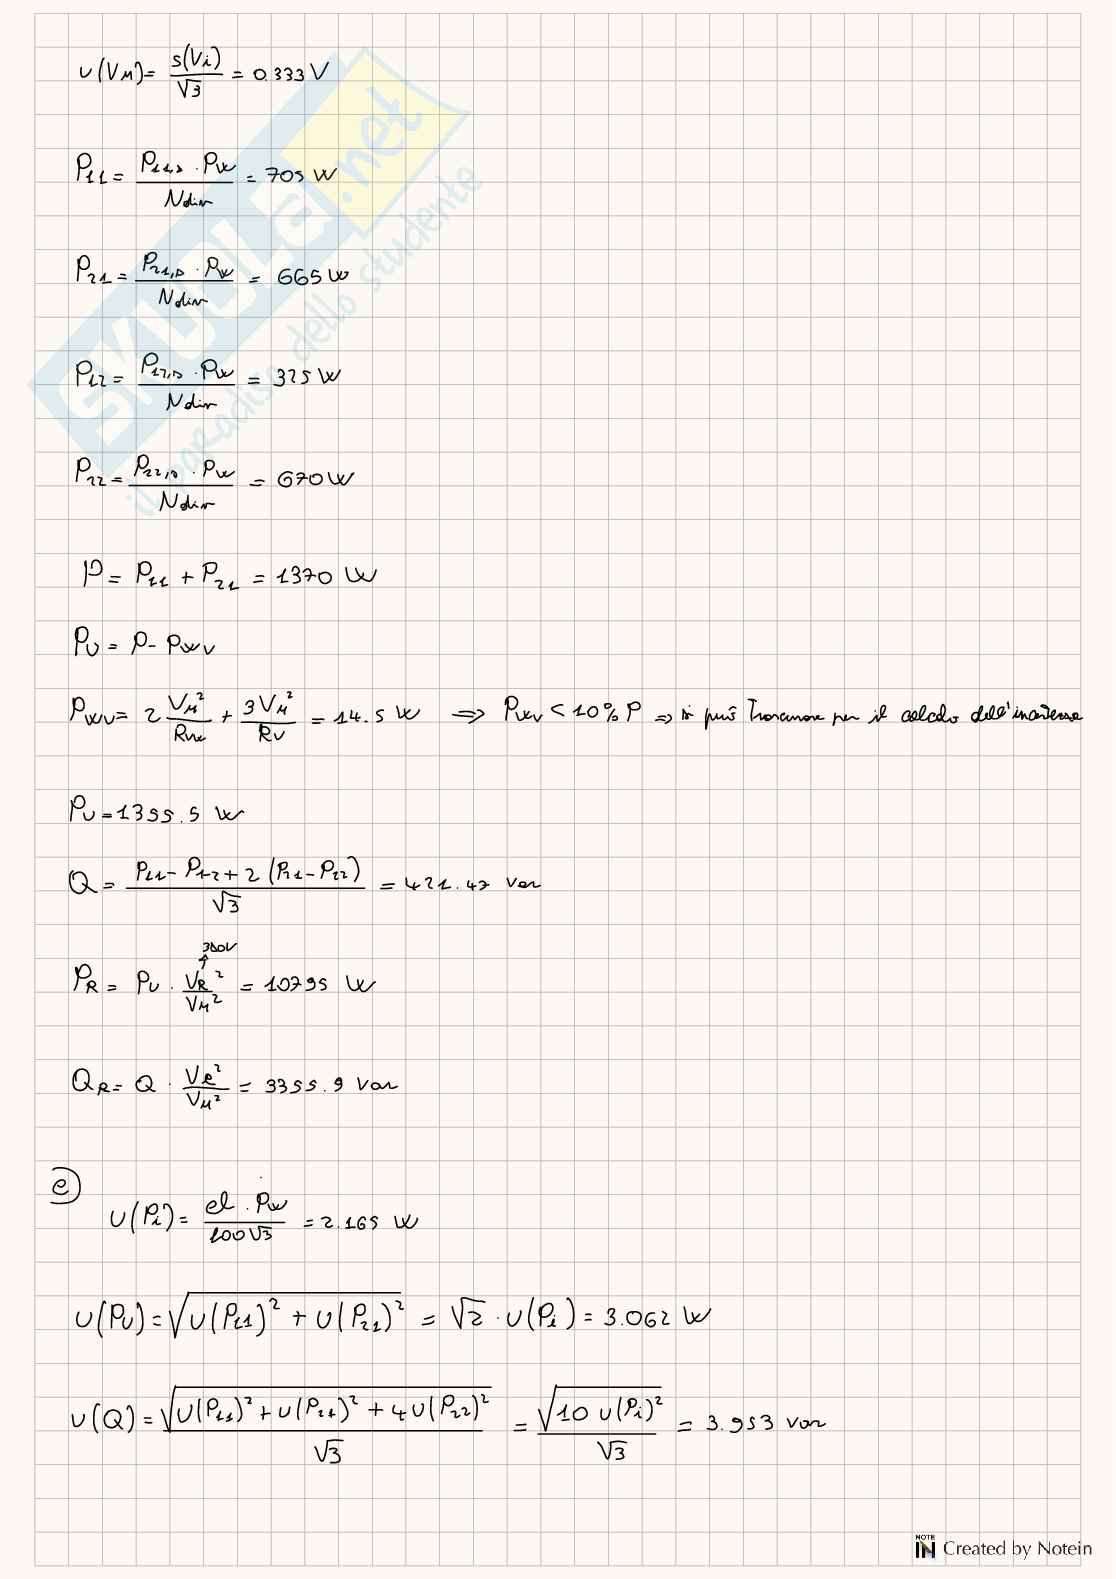 u(V_M) = s(V_i) / √3 = 0.333 V
P_11 = P_11,D · P_W / N_div = 705 W
P_21 = P_21,D · P_W / N_div = 665 W
P_12 = P_12,D · P_W / N_div = 325 W
P_22 = P_22,D · P_W / N_div = 670 W
P = P_11 + P_21 = 1370 W
P_U = P - P_WV
P_WV = 2 V_M² / R_VW + 3 V_M² / R_V = 14.5 W ⇒ P_WV < 10% P ⇒ si può trascurare per il calcolo dell'incertezza
P_U = 1355.5 W
Q = P_11 - P_12 + 2 (P_21 - P_22) / √3 = 421.47 var
380V
P_R = P_U · V_R² / V_M² = 10795 W
Q_R = Q · V_R² / V_M² = 3355.9 var
e)
U(P_i) = cl · P_W / 100√3 = 2.165 W
U(P_U) = √(U(P_11)² + U(P_21)²) = √2 · U(P_i) = 3.062 W
u(Q) = √(U(P_11)² + u(P_21)² + 4 U(P_22)²) / √3 = √(10 u(P_i)²) / √3 = 3.953 var
SKUOLA.net
il paradiso dello studente
NOTE IN Created by Notein